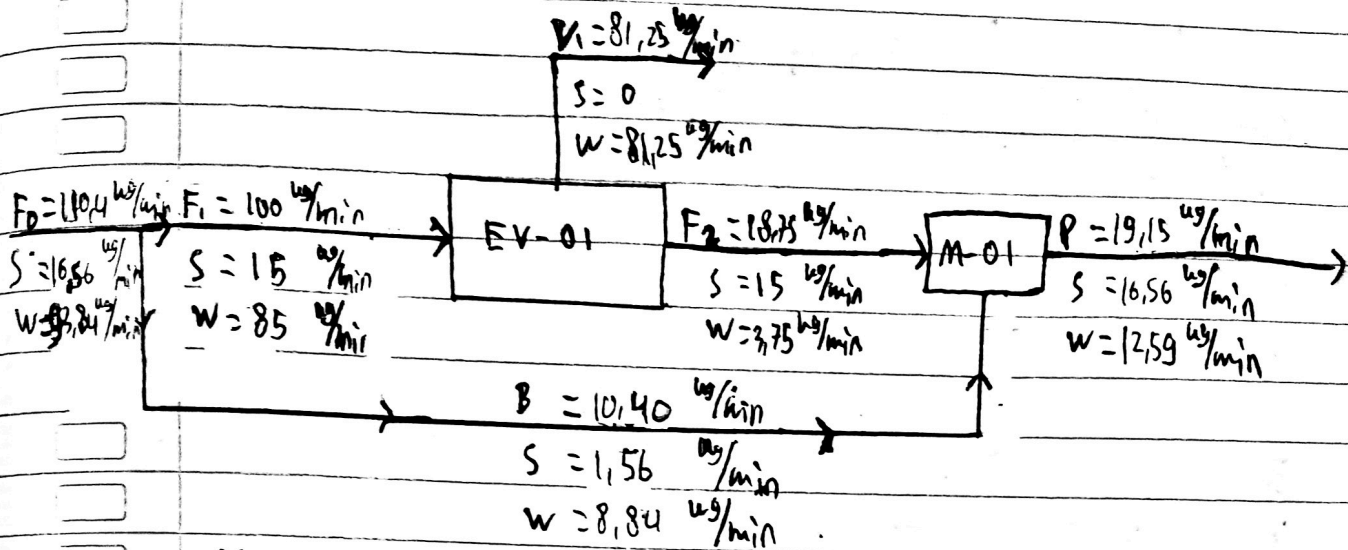 V₁ = 81,25 kg/min
S = 0
W = 81,25 kg/min
F₀ = 110,4 kg/min
S = 16,56 kg/min
W = 93,84 kg/min
F₁ = 100 kg/min
S = 15 kg/min
W = 85 kg/min
EV-01
F₂ = 18,75 kg/min
S = 15 kg/min
W = 3,75 kg/min
M-01
P = 19,15 kg/min
S = 16,56 kg/min
W = 12,59 kg/min
B = 10,40 kg/min
S = 1,56 kg/min
W = 8,84 kg/min